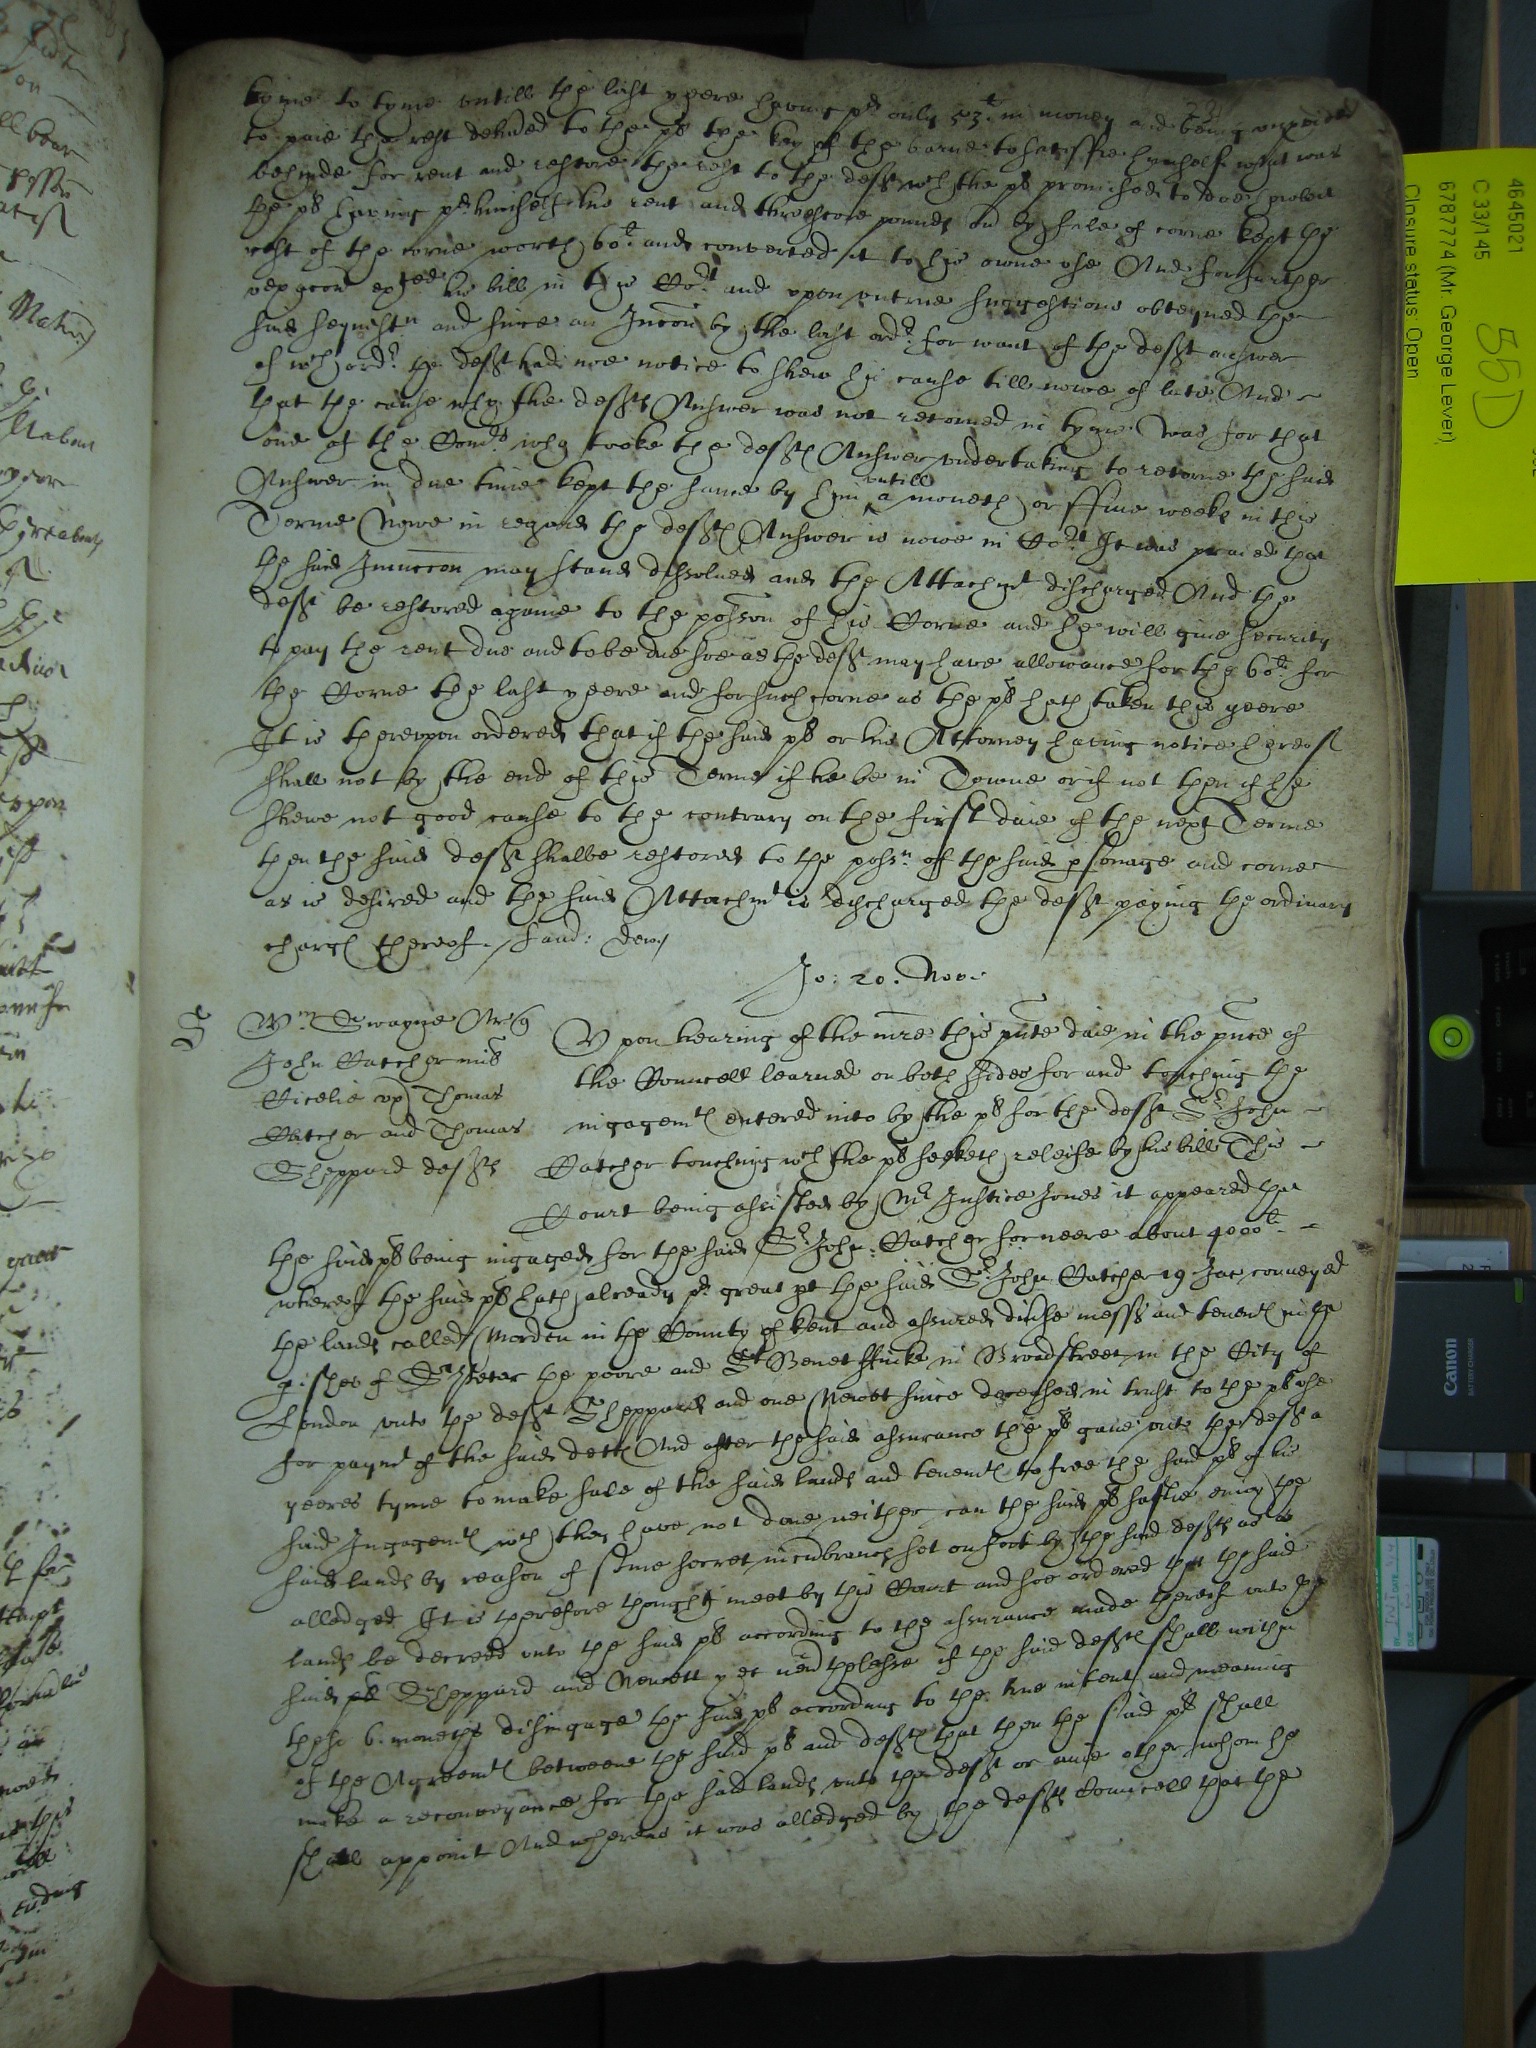 tyme to tyme untill the last yeere having pd only 53li in money and being unprvided
to paie the rest delivred to the pl the key of the barne to satisffie hymself what was
behinde for rent and restore the rest to the defft wch the pl promised to doe, howbeit
the pl having pd himself his rent and threscore pounds od by sale of corne kept the
rest of the corne worth 60li and converted it to his owne use And for further
vexacon exhted his bill in this Cort and upon untrue suggestions obteyned the
said sequestrn and since an Inioncon by the last ordr for want of the defft answer
of wch ordr the defft had noe notice to shew his cause till nowe of late And
that the cause why the deffts Answer was not retorned in tyme was for that
one of the Comrs who tooke the deffts Answer undertaking to retorne the said
Answer in due time kept the same by him untill a moneth or ffive weeks in this
Terme Nowe in regard the deffts Answer is nowe in Cort It was praied that
the said Iniunccon may stand dissolved and the Attachmt discharged And the
defft be restored againe to the possion of his Corne and he will give security
to pay the rent due and to be due soe as the defft may have allowance for the 60li for
the Corne the last yeere and for such corne as the pl hath taken this yeere
It is thereupon ordered that if the said pl or his Attorney having notice hereof
shall not by the end of this Terme if he be in Towne or if not then if he
shewe not good cause to the contrary on the first daie of the next Terme
then the said defft shalbe restored to the possn of the said psonage and corne
as is desired and the said Attachmt is discharged the defft paying the ordinary
chargs thereof.
Jo: 20. Nov.
S
Wm Swayne Ar q
John Catcher mil
Cicelie ux Thomas
Catcher and Thomas
Sheppard deffts
Upon hearing of the mre this pnte daie in the pnce of
the Councell learned on both sides for and touching the
ingagemts entered into by the pl for the defft Sr John
Catcher touching wch the pl seeketh releife by his bill This
Court being assisted by Mr Justice Jones it appeared that
the said pl being ingaged for the said Sr John Catcher for neere about 4000li
whereof the said pl hath already pd great pt the said Sr John Catcher 19 Jac conveyed
the lands called Morden in the County of Kent and assured divse messs and tenemts in the
pishes of St Peter the poore and St Benet ffinke in Broadstreet in the City of
London unto the defft Sheppard and one Mewet since deceased in trust to the pl use
for paymt of the said detts And after the said assurance the pl gave unto the defft a
yeeres tyme to make sale of the said lands and tenemts to free the said pl of his
said Ingagemts wch they have not done neither can the said pl saflie enioy the
said lands by reason of some secret incumbrances set on foot by the said deffts as is
alledged It is therefore thought meet by this Court and soe ordered that the said
lands be decreed unto the said pl according to the assurance made thereof unto the
said pl Sheppard and Mewett yet neverthelesse if the said deffts shall within
these 6. moneths disingage the said pl according to the true intent and meaning
of the Agreemts betweene the said pl and deffts that then the said pl shall
make a reconveyance for the said lands unto the defft or anie other whom he
shall appoint And whereas it was alledged by the deffts Councell that the
4645021
C 33/145
6787774 (Mr. George Lever)
Closure status: Open
55D
Canon
BATTERY CHARGER